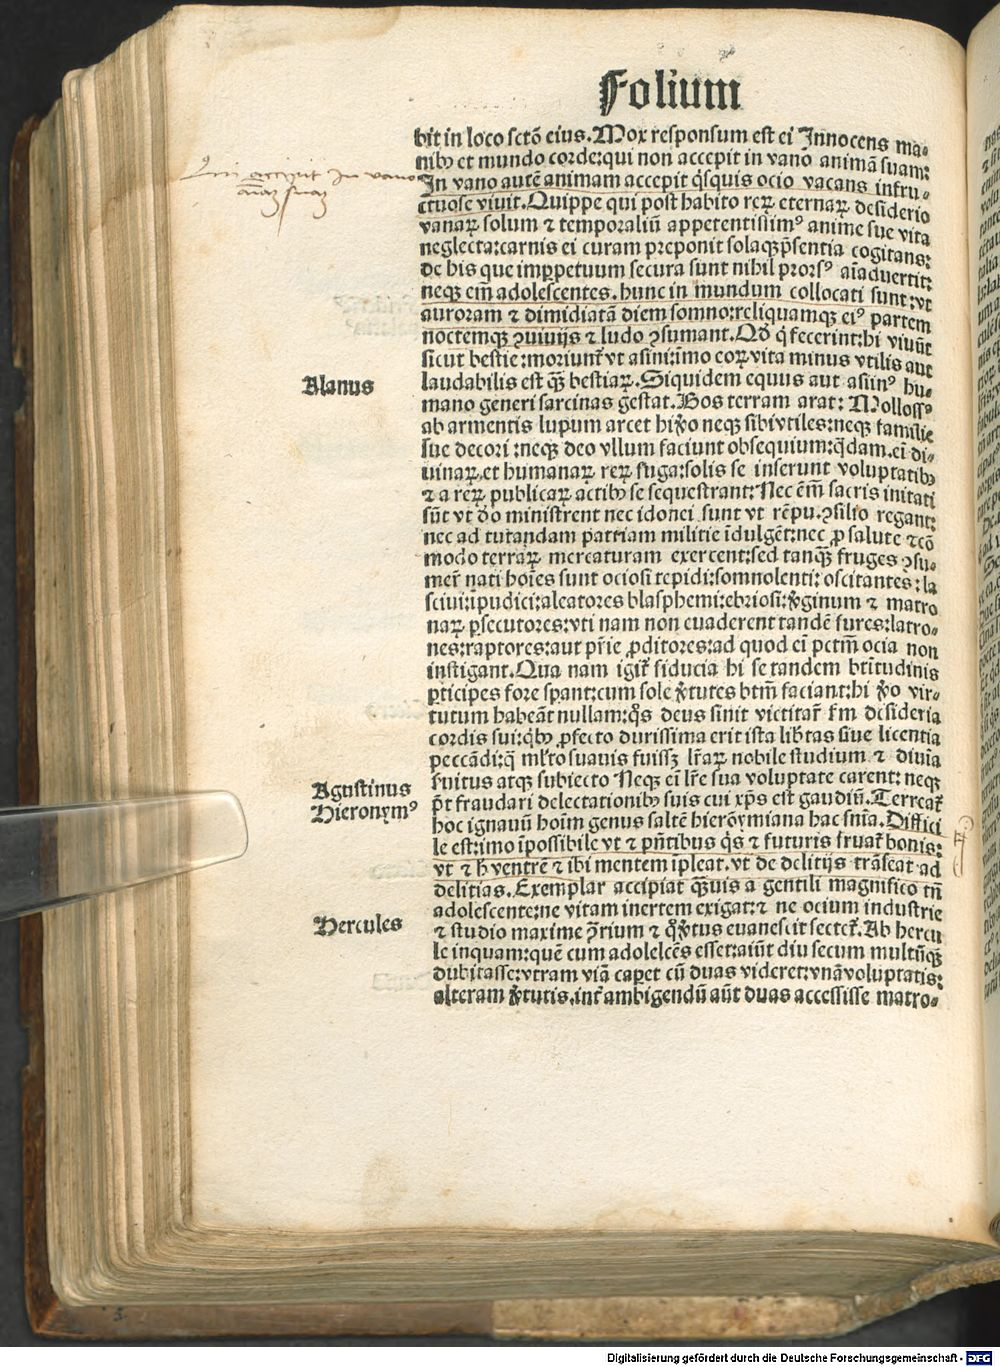 Folium
bit in loco sctō eius. Mox responsum est ei Innocens ma⸗
nibꝰ et mundo corde: qui non accepit in vano animā suam:
In vano autē animam accepit q̇squis ocio vacans infru⸗
ctuose viuit. Quippe qui post habito reꝝ eternaꝝ desiderio
vanaꝝ solum ⁊ temporaliū appetentissimꝰ anime sue vita
neglecta: carnis ei curam preponit solaqꝫ p̄sentia cogitans:
de his que imꝑpetuum secura sunt nihil prorsꝰ aīaduertit:
neqꝫ em̄ adolescentes. hunc in mundum collocati sunt: vt
auroram ⁊ dimidiatā diem somno: reliquamqꝫ eiꝰ partem
noctemqꝫ ꝯuiuijs ⁊ ludo ꝯsumant. Qd̄ q̇ fecerint: hi viuūt
sicut bestie: moriunt̄ vt asini: imo coꝝ vita minus vtilis aut
laudabilis est qꝫ̄ bestiaꝝ. Siquidem equus aut asiinꝰ hu⸗
mano generi sarcinas gestat. Bos terram arat: Molossꝰ
ab armentis lupum arcet hi v̄o neqꝫ sibi vtiles: neqꝫ familie
sue decori: neqꝫ deo vllum faciunt obsequium: q̇dam. ei̅ di⸗
uinaꝝ et humanaꝝ reꝝ fuga: solis se inserunt voluptatibꝰ
⁊ a reꝝ publicaꝝ actibꝰ se sequestrant: Nec em̄ sacris initati
sūt vt deo ministrent nec idonei sunt vt rē pu. ꝯsilio regant:
nec ad tutandam patriam militie īdulgēt: nec ꝓ salute ⁊ cō
modo terraꝝ mercaturam exercent: sed tanqꝫ̄ fruges ꝯsu⸗
mer̄ nati hoīes sunt ociosi tepidi: somnolenti: oscitantes: la
sciui: īpudici: aleatores blasphemi: ebriosi: v̄ginum ⁊ matro
naꝝ ꝑsecutores: vti nam non euaderent tandē fures: latro⸗
nes: raptores: aut pr̄ie ꝓditores: ad quod ei̅ pctm̄ ocia non
instigant. Qua nam igit̄ fiducia hi se tandem btītudinis
ꝑticipes fore spant: cum sole v̄tutes btm̄ faciant: hi v̄o vir⸗
tutum habeāt nullam: q̇s deus sinit victitar̄ fm̄ desideria
cordis sui: q̇bꝰ ꝓfecto durissima erit ista lib̄tas siue licentia
peccādi: q̄ ml̄to suauis fuissꝫ lr̄aꝝ nobile studium ⁊ diuīa
fruitus atqꝫ subiecto Neqꝫ ei̅ lr̄e sua voluptate carent: neqꝫ
p̄t fraudari delectationibꝰ suis cui xp̄s est gaudiū. Terreat̄
hoc ignauū hoīm genus saltē hierōymiana hac snīa. Diffici
le est: imo īpossibile vt ⁊ pn̄tibus q̇s ⁊ futuris fruat̄ bonis:
vt ⁊ h̄ ventrē ⁊ ibi mentem īpleat. vt de delitijs trāseat ad
delitias. Exemplar accipiat qꝫ̄uis a gentili magnifico tn̄
adolescente: ne vitam inertem exigat: ⁊ ne ocium industrie
⁊ studio maxime p̄rium ⁊ q̇ v̄tus euanescit sectet̄. Ab hercu
le inquam: quē cum adolescēs esset: aiūt diu secum multūqꝫ
dubitasse: vtram viā caꝑet cū duas videret: vnā voluptatis:
alteram v̄tutis. int̄ ambigendū aūt duas accessisse matro⸗
Qui accipit in vano
aīaꝫ suaꝫ
Alanus
Agustinus
Hieronymꝰ
Hercules
Digitalisierung gefördert durch die Deutsche Forschungsgemeinschaft - DFG